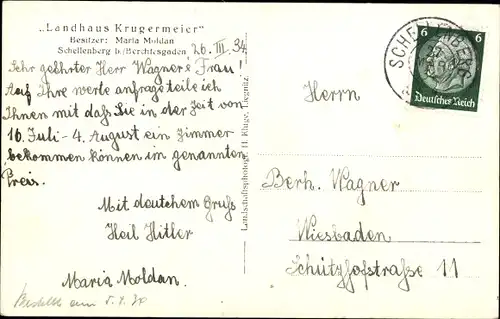 „Landhaus Krugermeier"
Besitzer: Maria Moldan
Schellenberg b/Berchtesgaden
26. III. 34
Sehr geehrter Herr Wagner & Frau!
Auf Ihre werte anfrage teile ich
Ihnen mit daß Sie in der Zeit von
16. Juli - 4. August ein Zimmer
bekommen können im genannten
Preis.
Mit deutchem Gruß
Heil Hitler
Maria Moldan.
Bestellt am 5.4.
Landschaftsphotogr. H. Kluge, Liegnitz.
6 6
Deutsches Reich
SCHELLENBERG
Herrn
Berh. Wagner
Wiesbaden
Schützhofstraße 11